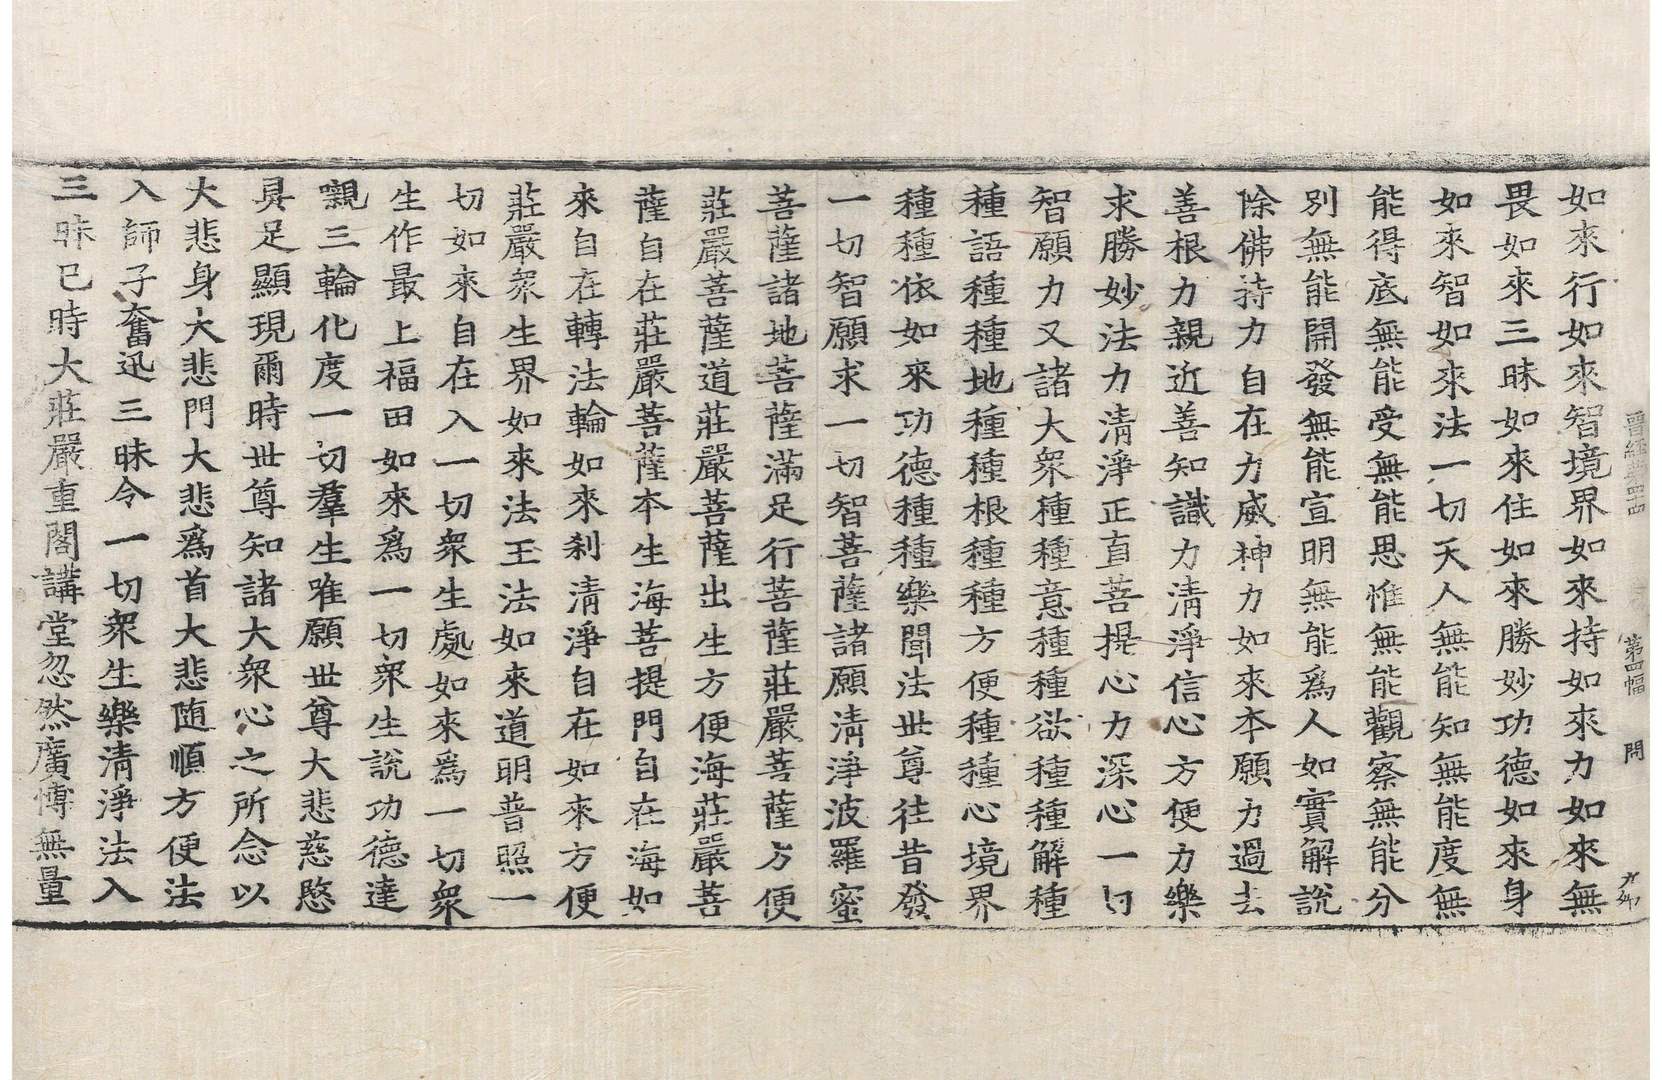 晋經第四十四 第四幅 問
如來行如來智境界如來持如來力如來無
畏如來三昧如來住如來勝妙功德如來身
如來智如來法一切天人無能知無能度無
能得底無能受無能思惟無能觀察無能分
別無能開發無能宣明無能爲人如實解說
除佛持力自在力威神力如來本願力過去
善根力親近善知識力清淨信心方便力樂
求勝妙法力清淨正直菩提心力深心一切
智願力又諸大衆種種意種種欲種種解種
種語種種地種種根種種方便種種心境界
種種依如來功德種種樂聞法世尊往昔發
一切智願求一切智菩薩諸願清淨波羅蜜
菩薩諸地菩薩滿足行菩薩莊嚴菩薩方便
莊嚴菩薩道莊嚴菩薩出生方便海莊嚴菩
薩自在莊嚴菩薩本生海菩提門自在海如
來自在轉法輪如來刹清淨自在如來方便
莊嚴衆生界如來法王法如來道明普照一
切如來自在入一切衆生處如來爲一切衆
生作最上福田如來爲一切衆生說功德達
嚫三輪化度一切羣生唯願世尊大悲慈愍
具足顯現爾時世尊知諸大衆心之所念以
大悲身大悲門大悲爲首大悲随順方便法
入師子奮迅三昧令一切衆生樂清淨法入
三昧已時大莊嚴重閣講堂忽然廣博無量